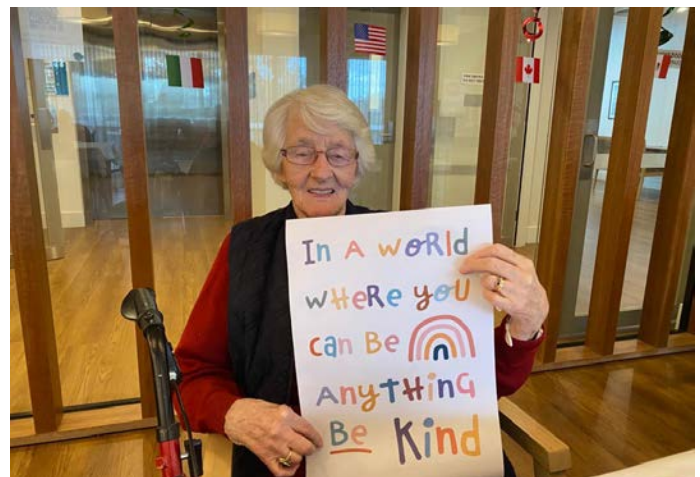 In A WORld
wHeRe yoU
can Be
AnytHinG
Be Kind